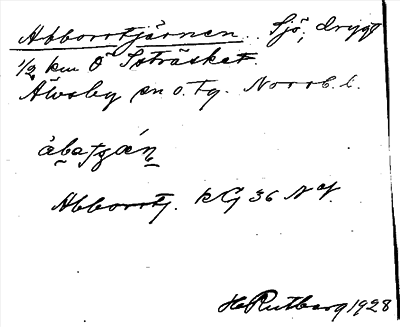 Abborrtjärnen. Sjö, drygt
1/2 km Ö Isträsket.
Älvsby sn o. tg. Norrb. l.
åbatjæn
Abborrtj. kG 36 Nof.
H. Rutberg 1928